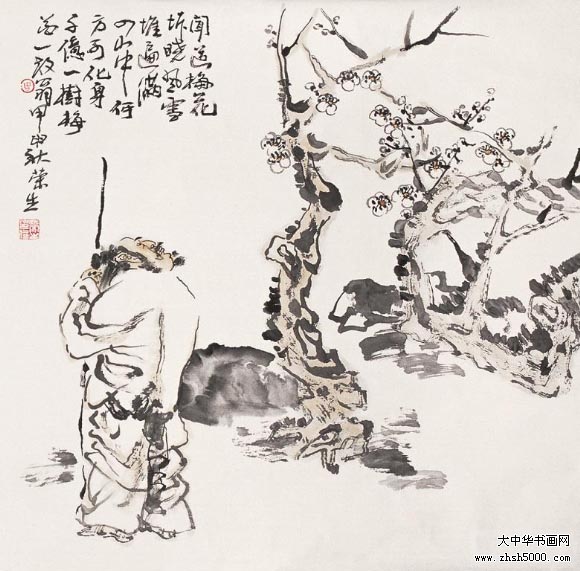 聞道梅花
坼曉風雪
堆遍滿
四山中何
方可化身
千億一樹梅
花一放翁甲申秋榮生
大中华书画网
www.zhsh5000.com